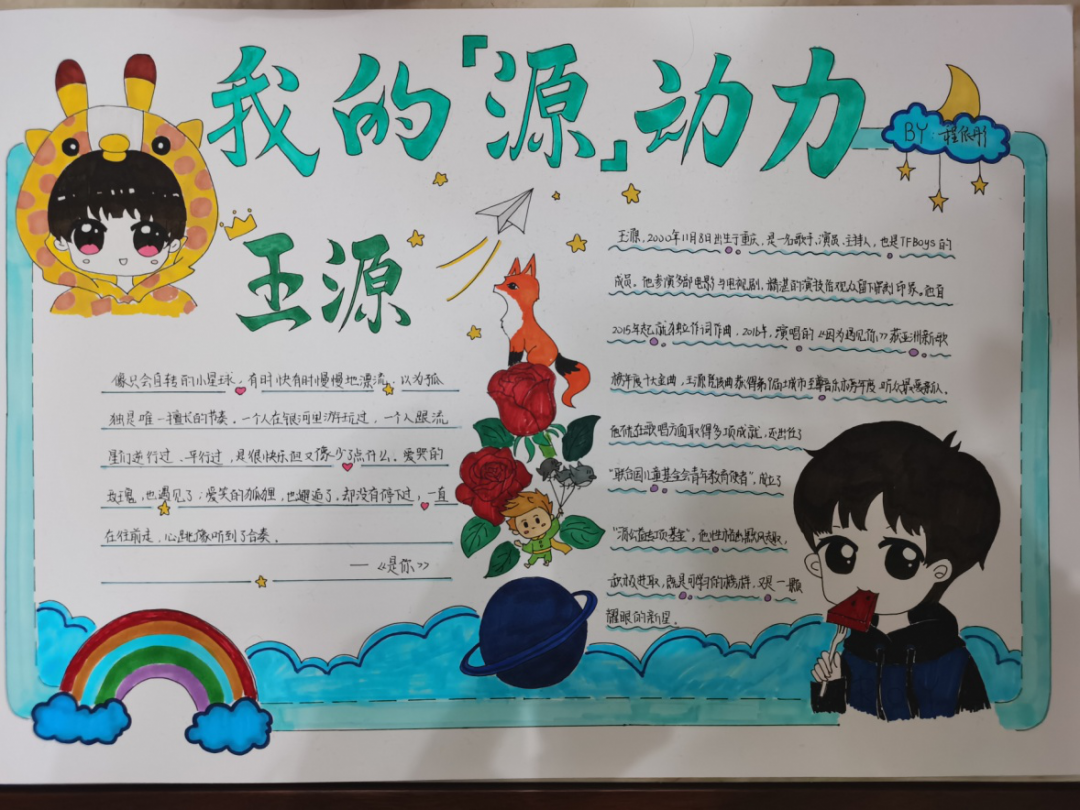 我的「源」动力
BY 程依彤
王源
像只会自转的小星球，有时快有时慢慢地漂流，以为孤
独是唯一擅长的节奏。一个人在银河里游玩过，一个人跟流
星们逆行过、平行过，是很快乐但又像少了点什么。爱哭的
玫瑰，也遇见了；爱笑的狐狸，也邂逅了，却没有停下过，一直
在往前走，心跳像听到了合奏。
—《是你》
王源，2000年11月8日出生于重庆，是一名歌手、演员、主持人，也是TFBoys的
成员。他参演多部电影与电视剧，精湛的演技给观众留下深刻印象。他自
2015年起就独立作词作曲，2016年，演唱的《因为遇见你》获亚洲新歌
榜年度十大金曲，王源凭此曲获得第9届城市至尊音乐榜年度听众最爱新人。
他除在歌唱方面取得多项成就，还出任了
“联合国儿童基金会青年教育使者”，成立了
“源公益专项基金”。他性格幽默风趣，
积极进取，既是可学习的榜样，又是一颗
耀眼的新星。